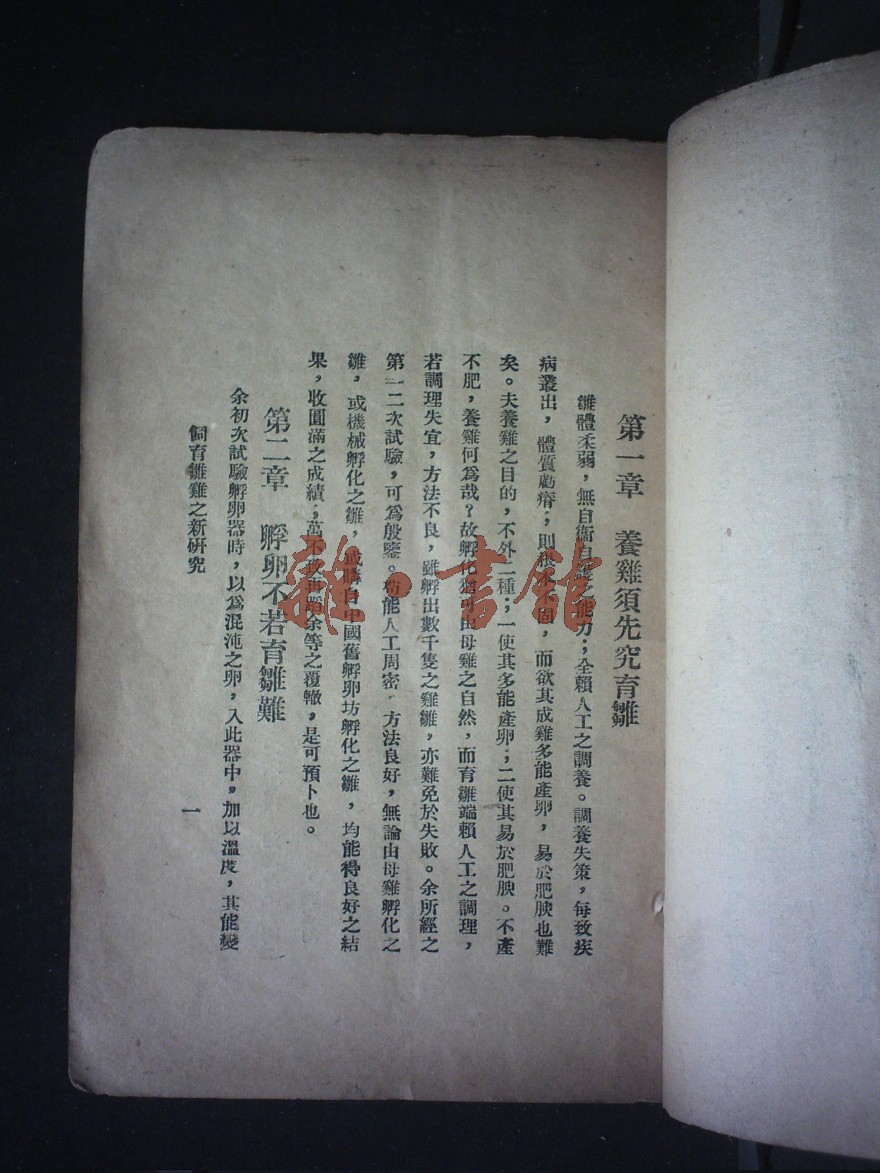 第一章　養雞須先究育雛
雛體柔弱，無自衛自護之能力；全賴人工之調養。調養失策，每致疾
病叢出，體質虧瘠；則根本不固，而欲其成雞多能產卵，易於肥腴也難
矣。夫養雞之目的，不外二種；一使其多能產卵；二使其易於肥腴。不產
不肥，養雞何爲哉？故孵化猶可由母雞之自然，而育雛端賴人工之調理，
若調理失宜，方法不良，雖孵出數千隻之雞雛，亦難免於失敗。余所經之
第一二次試驗，可爲殷鑒。苟能人工周密，方法良好，無論由母雞孵化之
雛，或機械孵化之雛，或購自中國舊孵卵坊孵化之雛，均能得良好之結
果，收圓滿之成績；萬不致再蹈余等之覆轍，是可預卜也。
第二章　孵卵不若育雛難
余初次試驗孵卵器時，以爲混沌之卵，入此器中，加以溫度，其能變
飼育雛雞之新研究
一
雜·書館